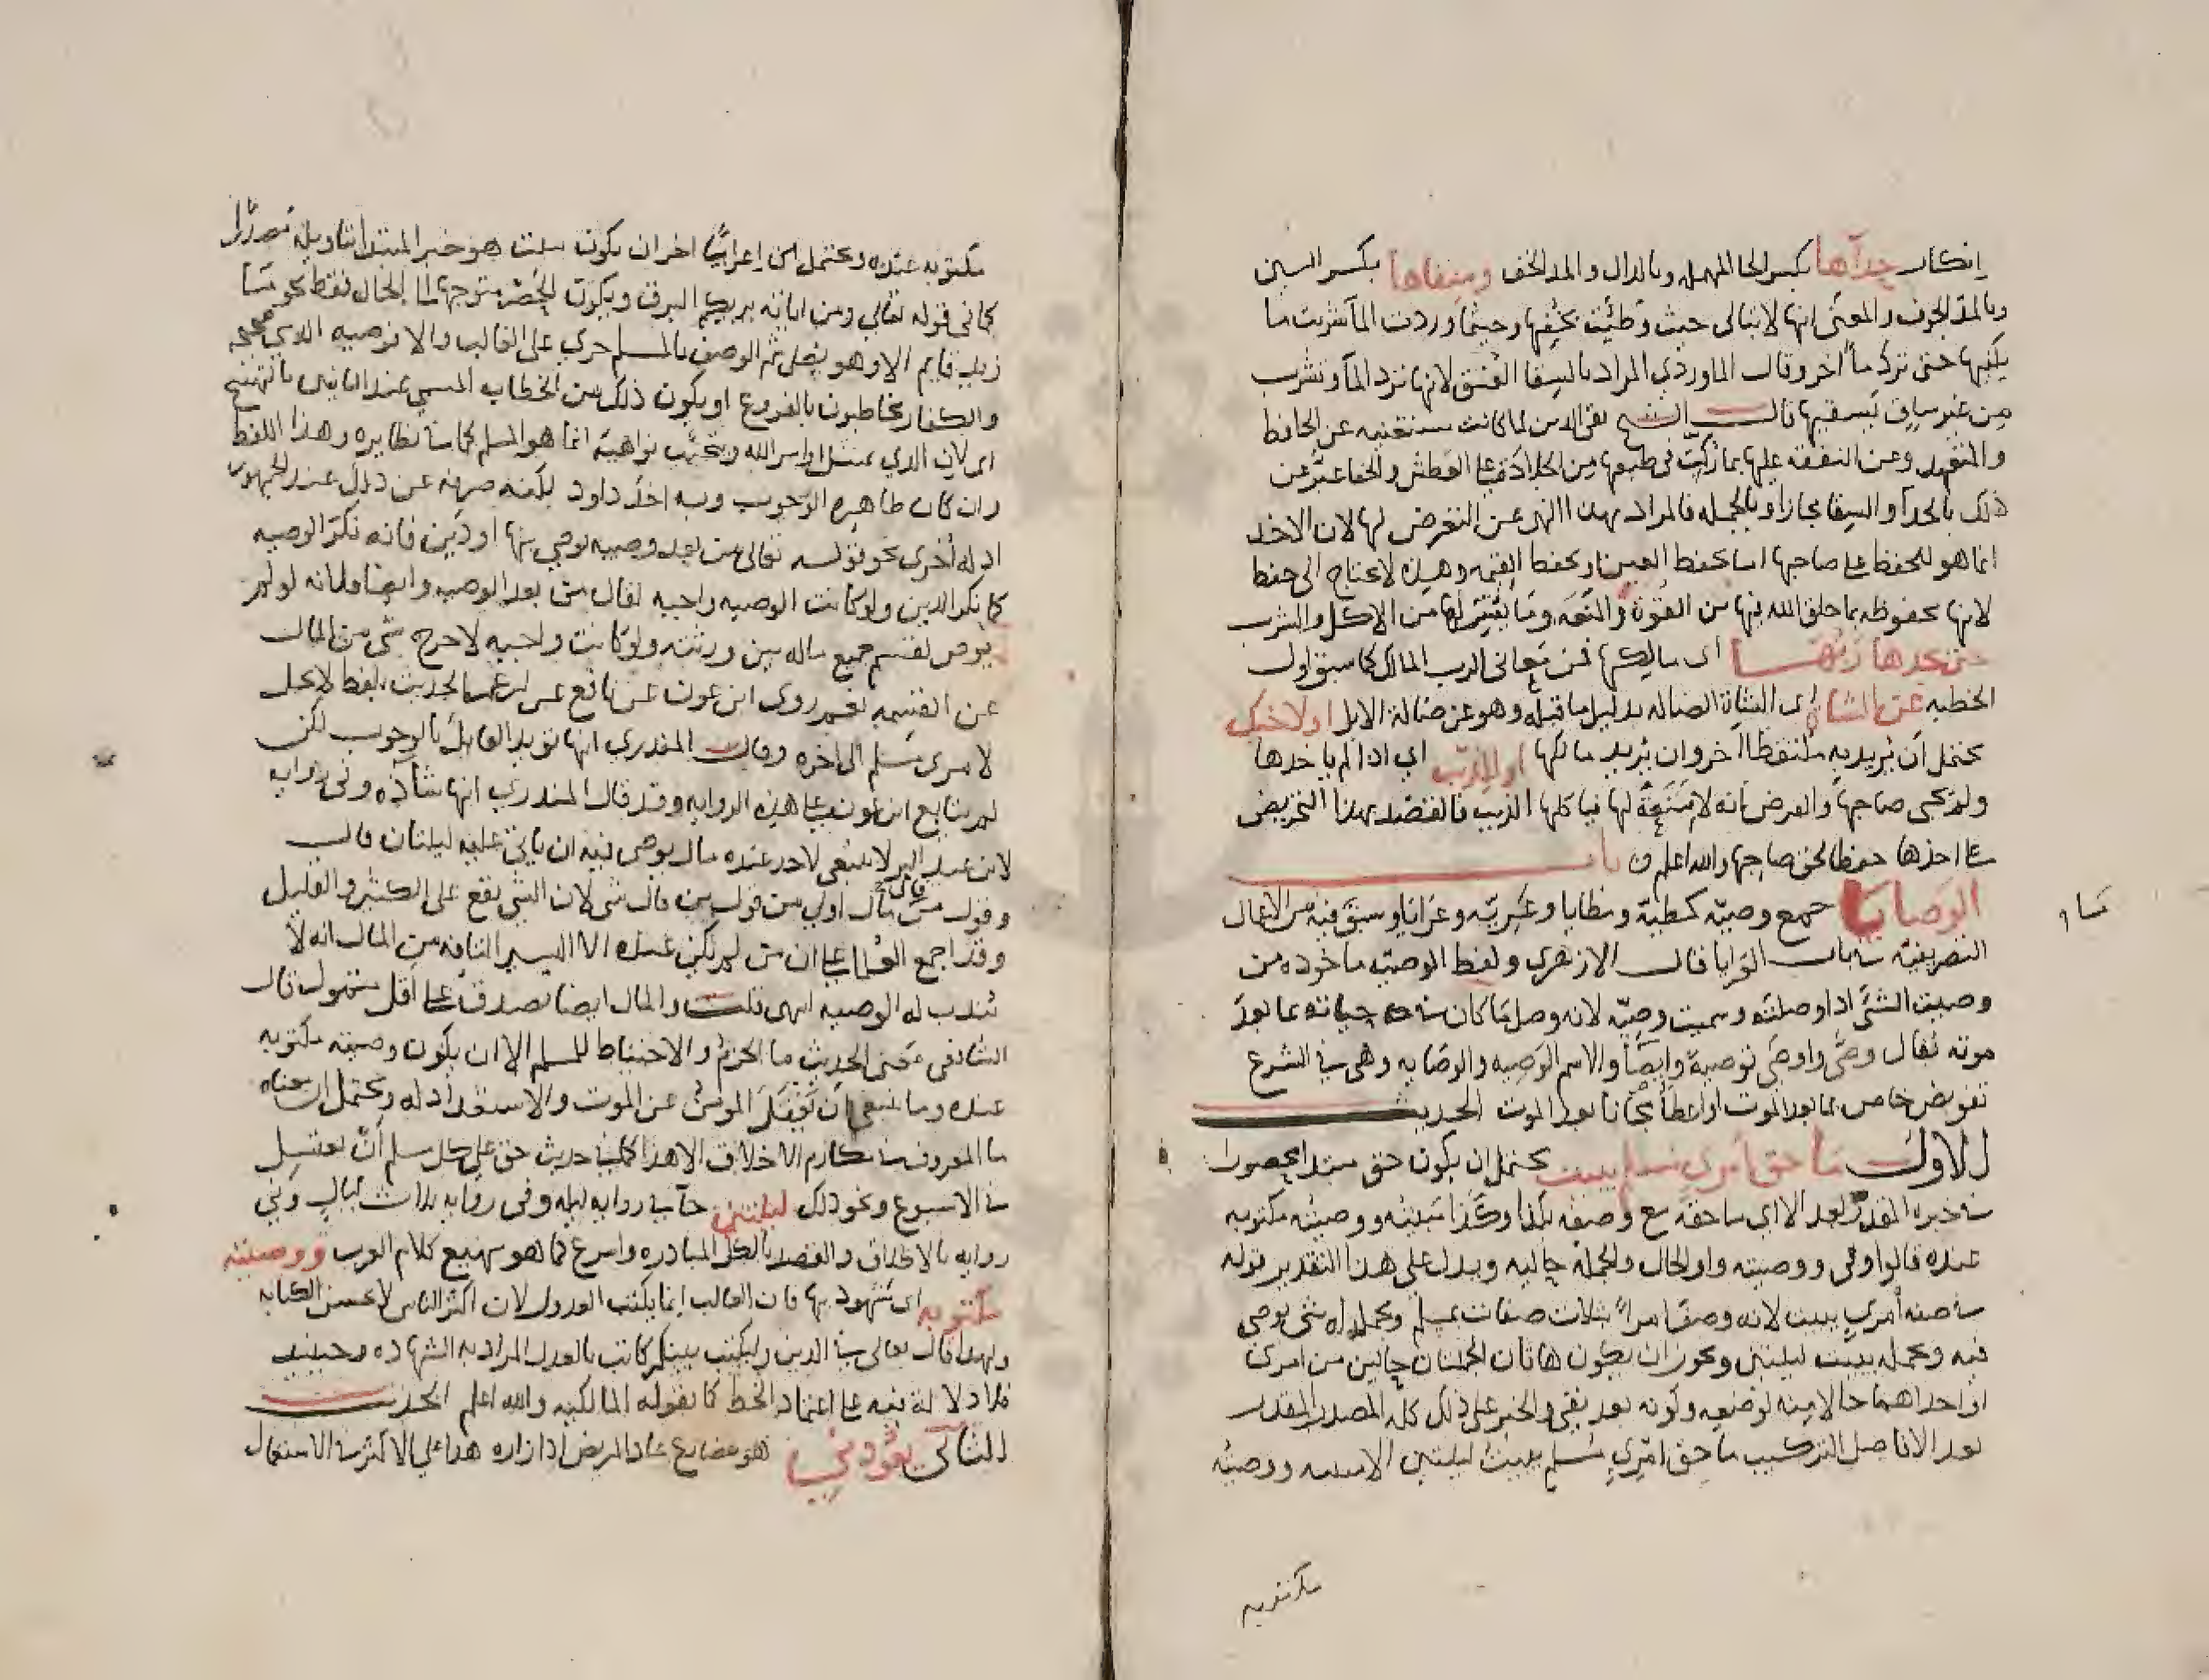 انكار حذآها بكسر الحا المهمله وبالدال والمد الخف وسقاها بكسر السين
وبالمد الجوف والمعنى انها لا تبالى حيث وطئت بخفها وحيثما وردت المآ شربت ما
يكفيها حتى ترد مآ اخر وقال الماوردي المراد بالسقا العنق لانها ترد المآ وتشرب
من غير ساق يسقيها قال الشيخ تقى الدين لما كانت مستغنيه عن الحافظ
والمتعهد وعن النفقه عليها بما ركب فى طبعها من الجلاده على العطش والحفا عبر عن
ذلك بالحدآ والسقا مجازا وبالجمله فالمراد بهذا النهى عن التعرض لها لان الاخد
انما هو للحفظ على صاحبها اما بحفظ العين او بحفظ القيمه وهذه لا تحتاج الى حفظ
لانها محفوظه بما خلق الله فيها من القوة والمنعه وما يتيسر لها من الاكل والشرب
حتى يجدها ربها اى مالكها فمن معانى الرب المالك كما سبق اول
الخطبه عن الشاة اى الشاة الضاله بدليل ما قبله وهو عن ضالة الابل او لاخيك
يحتمل ان يريد به ملتقطا اخر وان يريد مالكها او للذيب اي اذا لم ياخدها
ولم يجى صاحبها والغرض انه لا منعة لها فياكلها الذيب فالقصد بهذا التحريض
على اخذها حفظا لحق صاحبها والله اعلم باب
الوصايا جمع وصيه كمطية ومطايا وسبق فيه من الاعمال
التصريفيه فى باب العرايا قال الازهري ولفظ الوصيه ماخوده من
وصيت الشئ اذا وصلته وسميت وصيه لانه وصل ما كان فى حياته بما بعد
موته يقال وصى واوصى توصية وايصآ والاسم الوصيه والوصايه وهى فى الشرع
تفويض خاص بما بعد الموت او اعطآ مجانا بعد الموت الحديث
الاول ما حق امري مسلم يبيت يحتمل ان يكون حق مبتدا محصورا
فى خبره المقدر بعد الا اى ما حقه مع وصفه بكذا وكذا مبيته ووصيته مكتوبه
عنده فالواو فى ووصيته واو الحال والجمله حاليه ويدل على هذا التقدير قوله
فى صفه امري يبيت لانه وصف امرا بثلاث صفات بمسلم وبجمله له شى يوصى
فيه وبجمله يبيت ليلتين ويجوز ان يكون هاتان الجملتان حالين من امرى
او احداهما حالا منه لوصفه وكونه بعد نفى والخبر على ذلك كله المصدر المقدر
بعد الا فاصل التركيب ما حق امرى مسلم يبيت ليلتين الا مبيته ووصيته
مكتوبه
مكتوبه عنده ويحتمل من اعرابا اخر ان يكون يبيت هو خبر المبتدا بتاويله مصدرا
كما فى قوله تعالى ومن اياته يريكم البرق ويكون الحصر متوجها الى الحال فقط نحو ما
زيد قايم الا وهو يضحك ثم الوصف بالمسلم جري على الغالب والا فوصيه الذمي صحيحه
والكفار مخاطبون بالفروع او يكون ذلك من الخطاب المسمى عند البيانيين بالتهييج
اى لان الدي يمتثل اوامر الله ويجتنب نواهيه انما هو المسلم كما سبق نظايره وهذا اللفظ
وان كان ظاهره الوجوب وبه اخذ داود لكنه صرفه عن ذلك عند الجمهور
ادله اخرى نحو قوله تعالى من بعد وصيه يوصي بها او دين فانه نكر الوصيه
كما نكر الدين ولو كانت الوصيه واجبه لقال من بعد الوصيه وايضا فلانه لو لم
يوص لقسم جميع ماله بين ورثته ولو كانت واجبه لاخرج شى من المال
عن القسمه نعم روى ابن عون عن نافع عن ابن عمر الحديث بلفظ لا يحل
لامرى مسلم الى اخره وقال المنذري انها تويد القايل بالوجوب لكن
لم يتابع ابن عون على هذه الروايه وقد قال المنذري انها شاذه وفى روايه
لابن عبد البر لا ينبغى لاحد عنده مال يوصى فيه ان ياتى عليه ليلتان قال
وقول من قال مال اولى من قول من قال شى لان الشى يقع على الكثير والقليل
وقد اجمع العلما على ان من لم يكن عنده الا اليسير التافه من المال انه لا
تندب له الوصيه انتهى قلت والمال ايضا يصدق على اقل متمول قال
الشافعى معنى الحديث ما الحزم والاحتياط للمسلم الا ان يكون وصيته مكتوبه
عنده وما ينبغى ان يغفل المومن عن الموت والاستعداد له ويحتمل ان معناه
ما المعروف فى مكارم الاخلاق الا هذا كما فى حديث حق على كل مسلم ان يغتسل
فى الاسبوع ونحو ذلك ليلتين جآ فى روايه ليله وفى روايه ثلاث ليال وفي
روايه بالاطلاق والقصد بالكل المبادره واسرع كما هو مهيع كلام العرب ووصيته
مكتوبه اى مشهود بها فان الغالب انما يكتب العدول لان اكثر الناس لا يحسن الكتابه
ولهذا قال تعالى فى الدين وليكتب بينكم كاتب بالعدل المراد به الشهاده وحينيد
فلا دلالة فيه على اعتماد الخط كما يقوله المالكيه والله اعلم الحديث
الثانى يعودني هو مضارع عاد المريض اذا زاره هذا على الاكثر فى الاستعمال